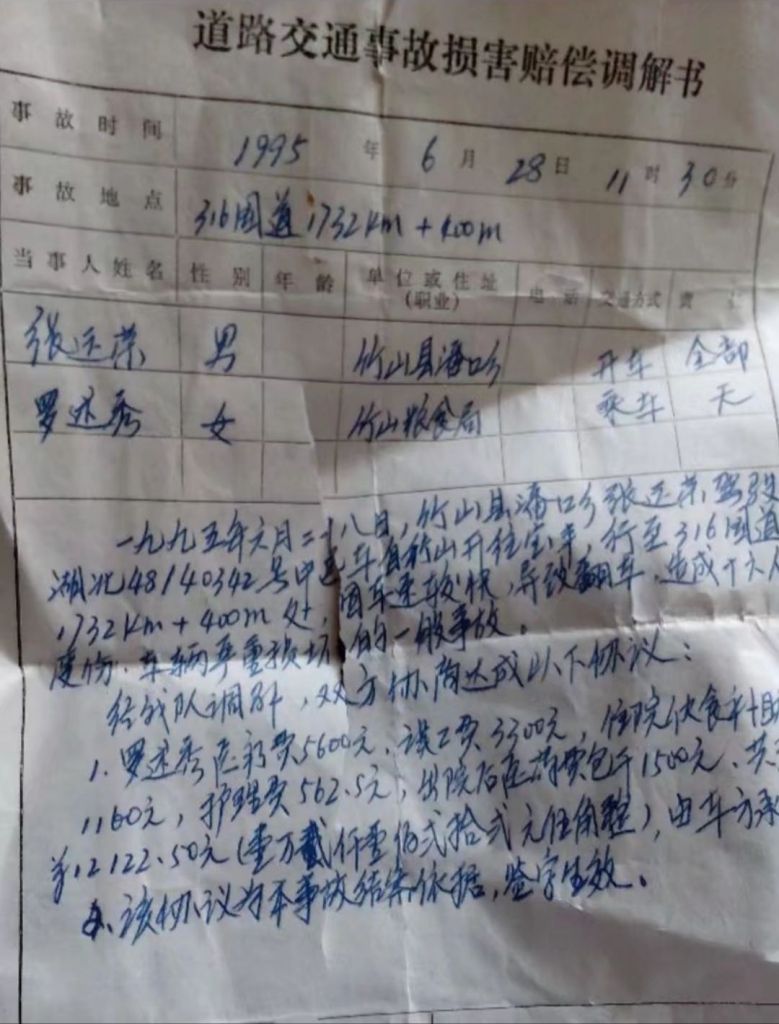 道路交通事故损害赔偿调解书
事故时间 1995 年 6 月 28 日 11 时 30 分
事故地点 316国道1732km+400m
当事人姓名 性别 年龄 单位或住址(职业) 电话 交通方式 责任
张 荣 男 竹山县 口乡 开车 全部
罗述秀 女 竹山粮食局 乘车 无
一九九五年六月二十八日，竹山县潘口乡张 荣驾驶
湖北48/40342号中巴车自竹山开往 ，行至316国道
1732km+400m处，因车速较快，导致翻车，造成十六人
度伤、车辆严重损坏的一般事故。
经我队调解，双方协商达成以下协议：
1. 罗述秀医药费5600元，误工费3300元，住院伙食补助
1160元，护理费562.5元，出院后医药费包干1500元，共
¥12122.50元(壹万贰仟壹佰弍拾弍元伍角整)，由车方承
该协议为本事故结案依据，签字生效。